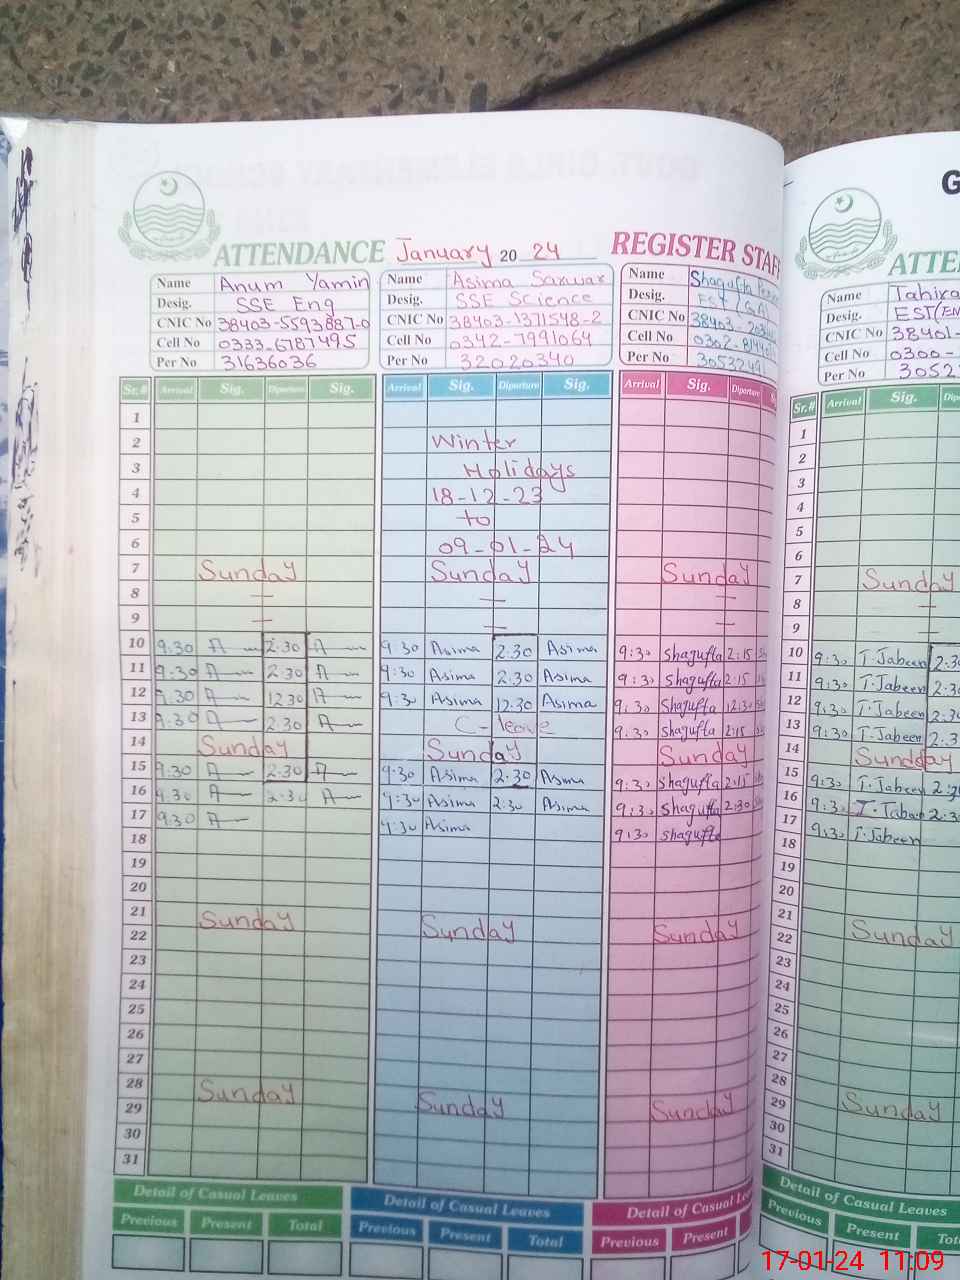 ATTENDANCE January 20 24 REGISTER STAFF
Name Anum Yamin
Desig. SSE Eng
CNIC No 38403-5593887-0
Cell No 0333-6787495
Per No 31636036
Name Asima Sarwar
Desig. SSE Science
CNIC No 38403-1371548-2
Cell No 0342-7991064
Per No 32020340
Name Shagufta
Desig. EST (GA)
CNIC No 38403-
Cell No 0302-
Per No
ATTE
Name Tahira
Desig. EST(EN
CNIC No 38401-
Cell No 0300-
Per No 3052
Sr.# Arrival Sig. Diparture Sig. Arrival Sig. Diparture Sig. Arrival Sig. Diparture Sr.# Arrival Sig.
1 1
2 Winter 2
3 Holidays 3
4 18-12-23 4
5 to 5
6 09-01-24 6
7 Sunday Sunday Sunday 7 Sunday
8 8
9 9
10 9:30 A 2:30 A 9:30 Asima 2:30 Asima 9:30 Shagufta 2:15 10 9:30 T.Jabeen 2:3
11 9:30 A 2:30 A 9:30 Asima 2:30 Asima 9:30 Shagufta 2:15 11 9:30 T.Jabeen 2:3
12 9:30 A 12:30 A 9:30 Asima 12:30 Asima 9:30 Shagufta 12:30 12 9:30 T.Jabeen
13 9:30 A 2:30 A C-leave 9:30 Shagufta 2:15 13 9:30 T.Jabeen 2:3
14 Sunday Sunday Sunday 14 Sunday
15 9:30 A 2:30 A 9:30 Asima 2:30 Asima 9:30 Shagufta 2:15 15 9:30 T.Jabeen
16 9:30 A 2:30 A 9:30 Asima 2:30 Asima 9:30 Shagufta 2:30 16 9:30 T.Jabeen 2:3
17 9:30 A 9:30 Asima 9:30 Shagufta 17 9:30 T.Jabeen
18 18
19 19
20 20
21 Sunday Sunday Sunday 21 Sunday
22 22
23 23
24 24
25 25
26 26
27 27
28 Sunday Sunday Sunday 28 Sunday
29 29
30 30
31 31
Detail of Casual Leaves Detail of Casual Leaves Detail of Casual Detail of Casual Leaves
Previous Present Total Previous Present Total Previous Present Previous Present
17-01-24 11:09